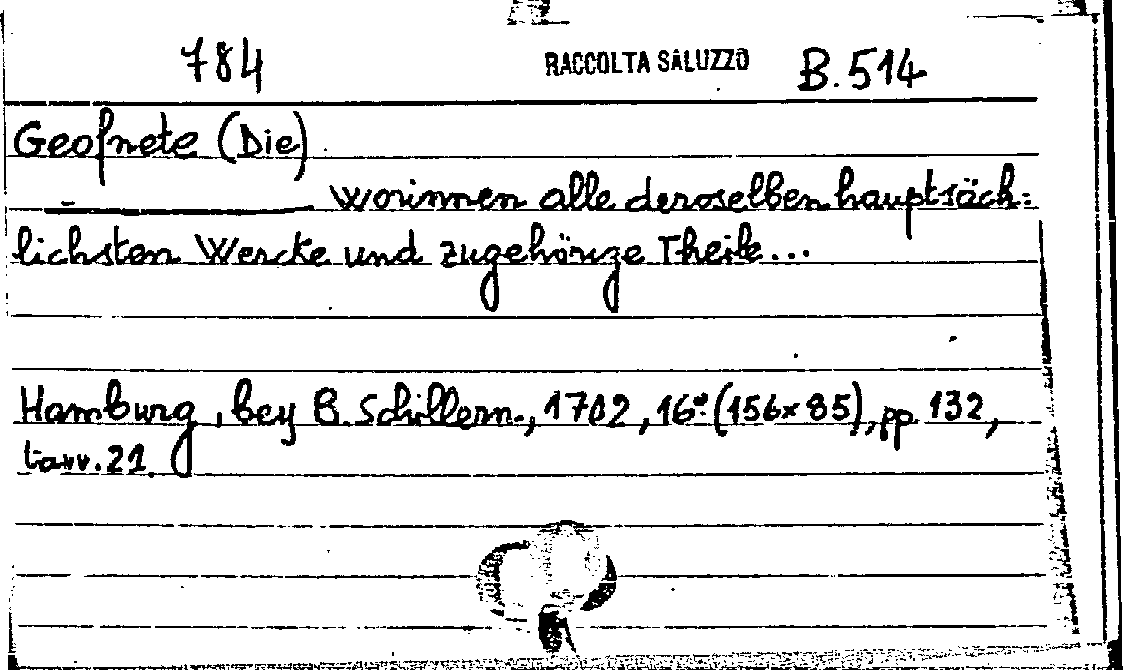 784 RACCOLTA SALUZZO B.514
Geofnete (Die)
— worinnen alle deroselben hauptsäch=
lichsten Wercke und zugehörige Theile...
Hamburg, bey B. Schillern., 1702, 16º (156x85), pp. 132,
tavv. 21.